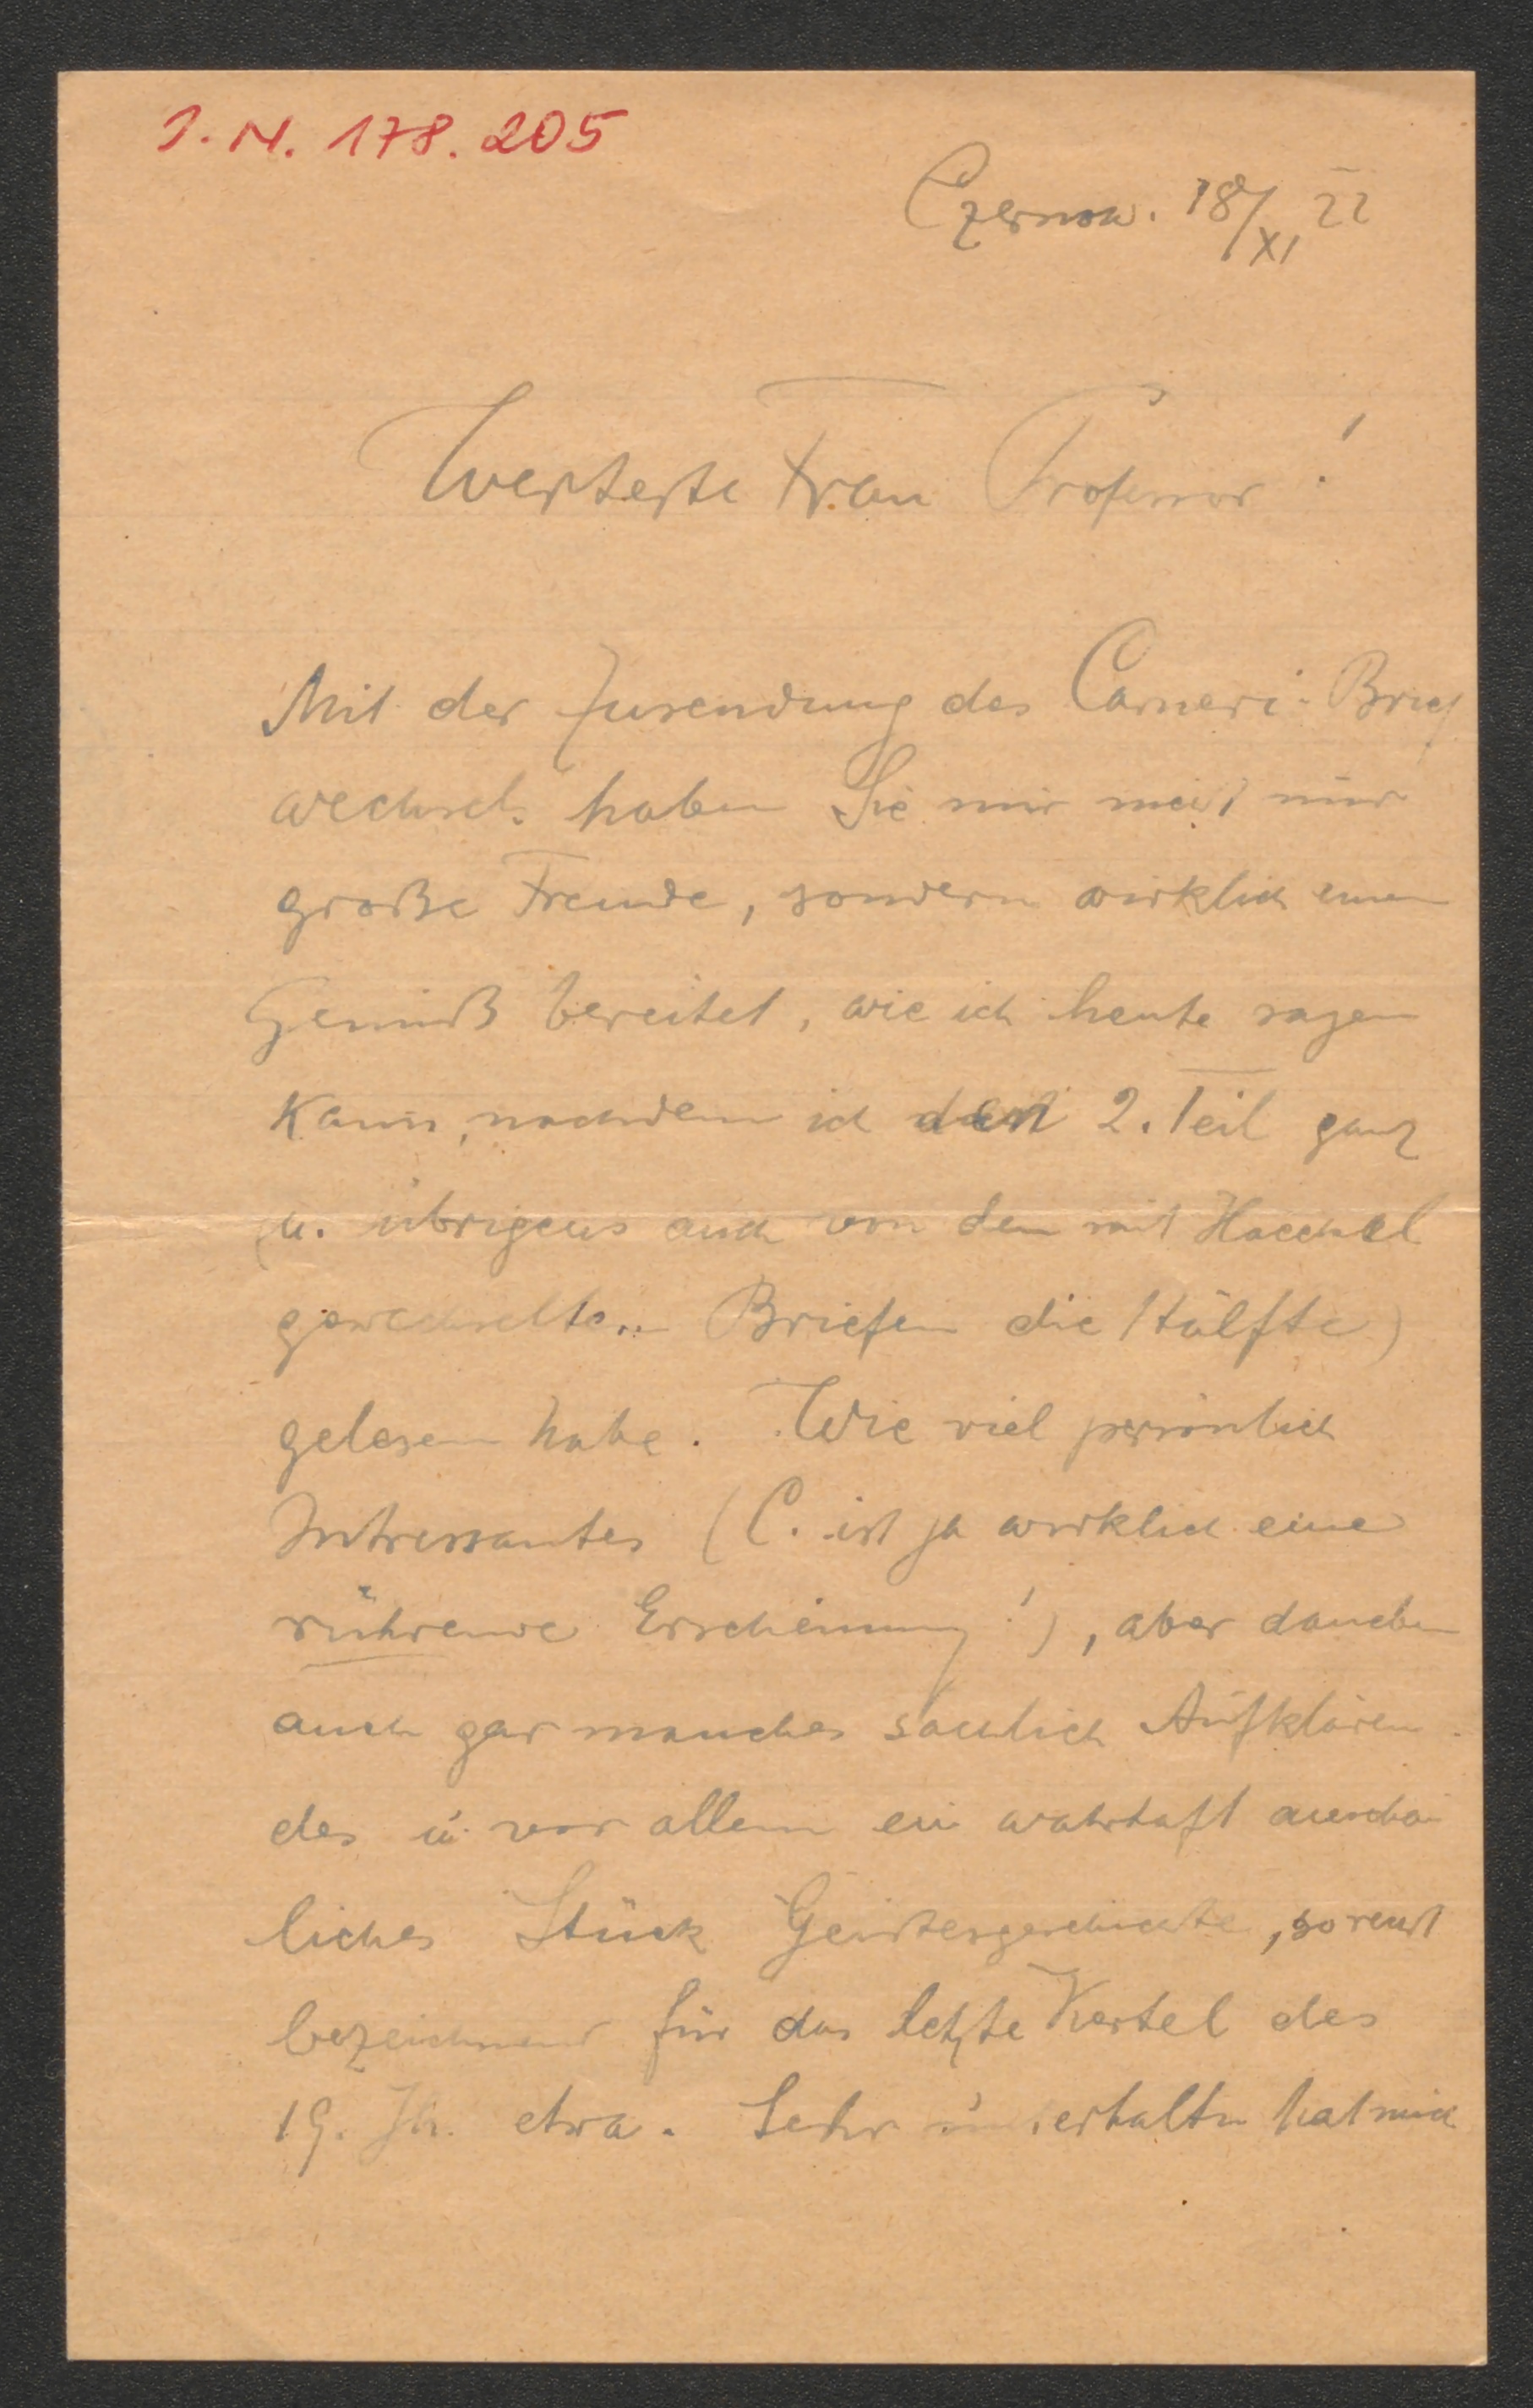 I. N. 178.205
Czernow. 18/XI 22
Werteste Frau Professor!
Mit der Zusendung des Carneri-Brief
wechsels haben Sie mir nicht nur
große Freude, sondern wirklich einen
Genuß bereitet, wie ich heute sagen
kann, nachdem ich den 2. Teil ganz
(u. übrigens auch von den mit Haeckel
gewechselten Briefen die Hälfte)
gelesen habe. Wie viel persönlich
Intressantes (C. ist ja wirklich eine
rührende Erscheinung!), aber daneben
auch gar manches sachlich Aufklären-
des u. vor allem ein wahrhaft anschau
liches Stück Geistesgeschichte, so recht
bezeichnend für das letzte Viertel des
19. Jh. etwa. Sehr unterhalten hat mich